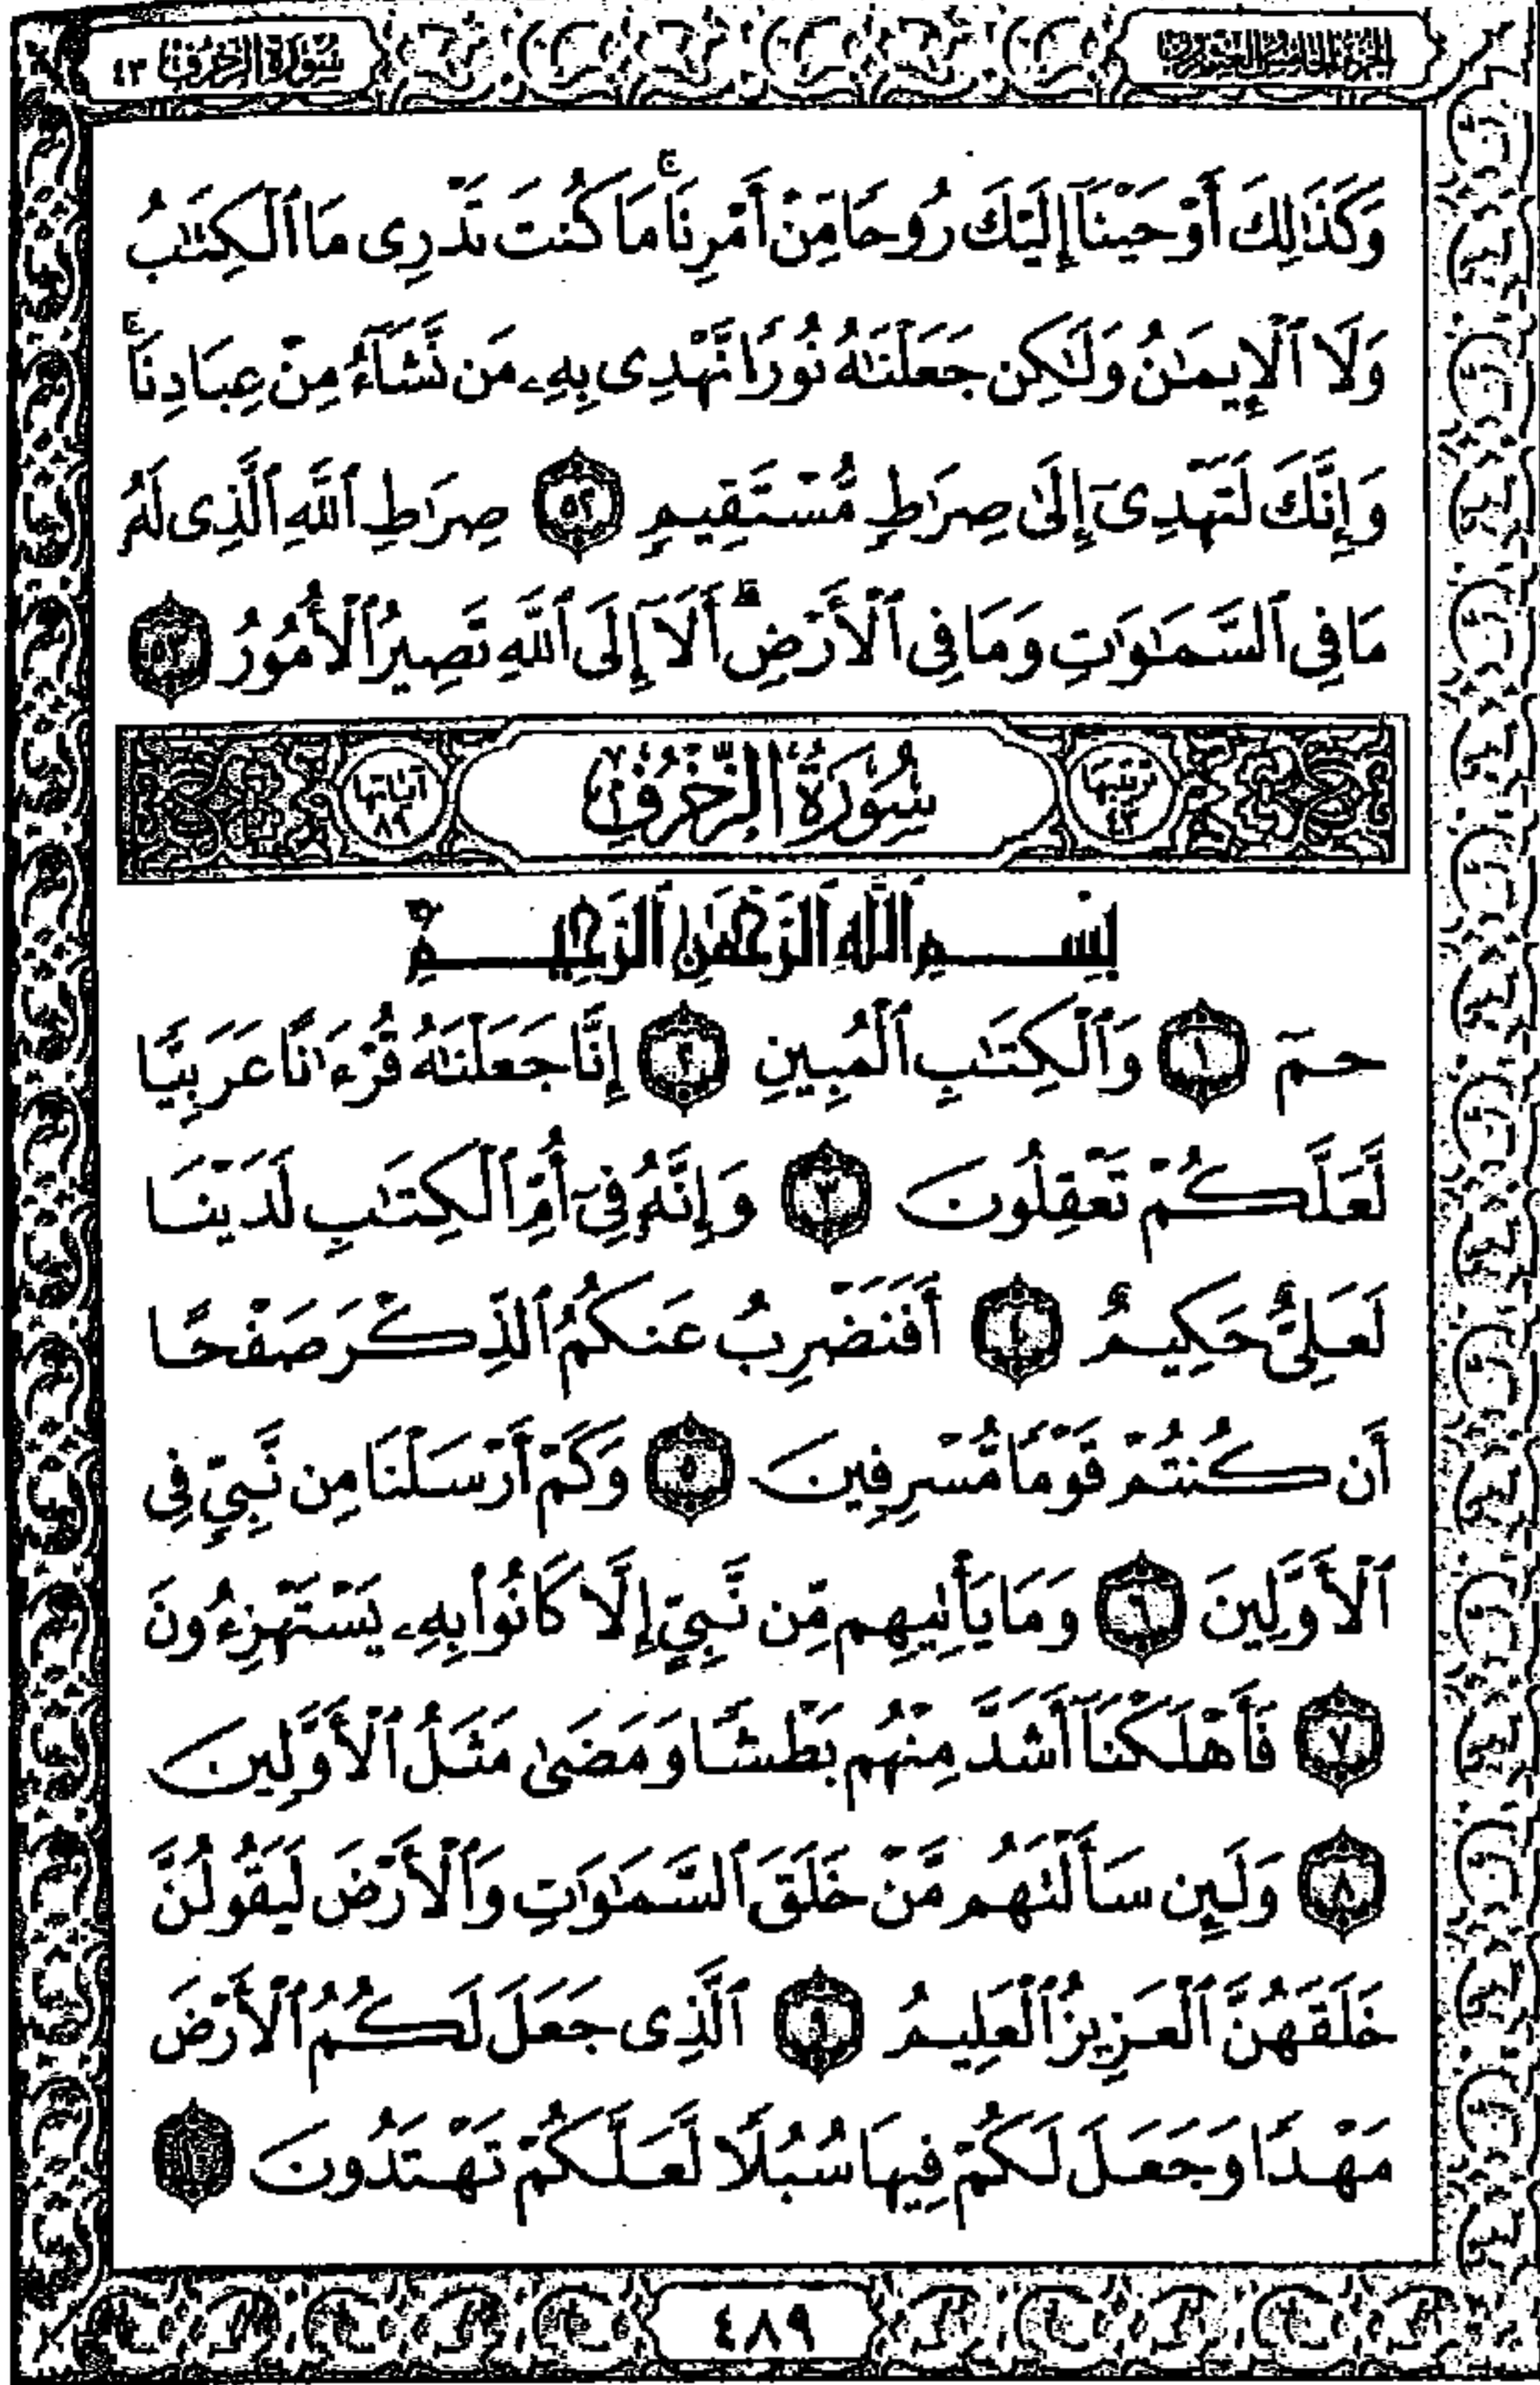 الجزء الخامس والعشرون
سُورَةُ الزُّخْرُفِ ٤٣
وَكَذَٰلِكَ أَوْحَيْنَآ إِلَيْكَ رُوحًا مِّنْ أَمْرِنَا ۚ مَا كُنتَ تَدْرِى مَا ٱلْكِتَٰبُ
وَلَا ٱلْإِيمَٰنُ وَلَٰكِن جَعَلْنَٰهُ نُورًا نَّهْدِى بِهِۦ مَن نَّشَآءُ مِنْ عِبَادِنَا ۚ
وَإِنَّكَ لَتَهْدِىٓ إِلَىٰ صِرَٰطٍ مُّسْتَقِيمٍ ٥٢ صِرَٰطِ ٱللَّهِ ٱلَّذِى لَهُۥ
مَا فِى ٱلسَّمَٰوَٰتِ وَمَا فِى ٱلْأَرْضِ ۗ أَلَآ إِلَى ٱللَّهِ تَصِيرُ ٱلْأُمُورُ ٥٣
ترتيبها ٤٣ سُورَةُ الزُّخْرُفِ آياتها ٨٩
بِسْمِ ٱللَّهِ ٱلرَّحْمَٰنِ ٱلرَّحِيمِ
حمٓ ١ وَٱلْكِتَٰبِ ٱلْمُبِينِ ٢ إِنَّا جَعَلْنَٰهُ قُرْءَٰنًا عَرَبِيًّا
لَّعَلَّكُمْ تَعْقِلُونَ ٣ وَإِنَّهُۥ فِىٓ أُمِّ ٱلْكِتَٰبِ لَدَيْنَا
لَعَلِىٌّ حَكِيمٌ ٤ أَفَنَضْرِبُ عَنكُمُ ٱلذِّكْرَ صَفْحًا
أَن كُنتُمْ قَوْمًا مُّسْرِفِينَ ٥ وَكَمْ أَرْسَلْنَا مِن نَّبِىٍّ فِى
ٱلْأَوَّلِينَ ٦ وَمَا يَأْتِيهِم مِّن نَّبِىٍّ إِلَّا كَانُوا۟ بِهِۦ يَسْتَهْزِءُونَ
٧ فَأَهْلَكْنَآ أَشَدَّ مِنْهُم بَطْشًا وَمَضَىٰ مَثَلُ ٱلْأَوَّلِينَ
٨ وَلَئِن سَأَلْتَهُم مَّنْ خَلَقَ ٱلسَّمَٰوَٰتِ وَٱلْأَرْضَ لَيَقُولُنَّ
خَلَقَهُنَّ ٱلْعَزِيزُ ٱلْعَلِيمُ ٩ ٱلَّذِى جَعَلَ لَكُمُ ٱلْأَرْضَ
مَهْدًا وَجَعَلَ لَكُمْ فِيهَا سُبُلًا لَّعَلَّكُمْ تَهْتَدُونَ ١٠
٤٨٩